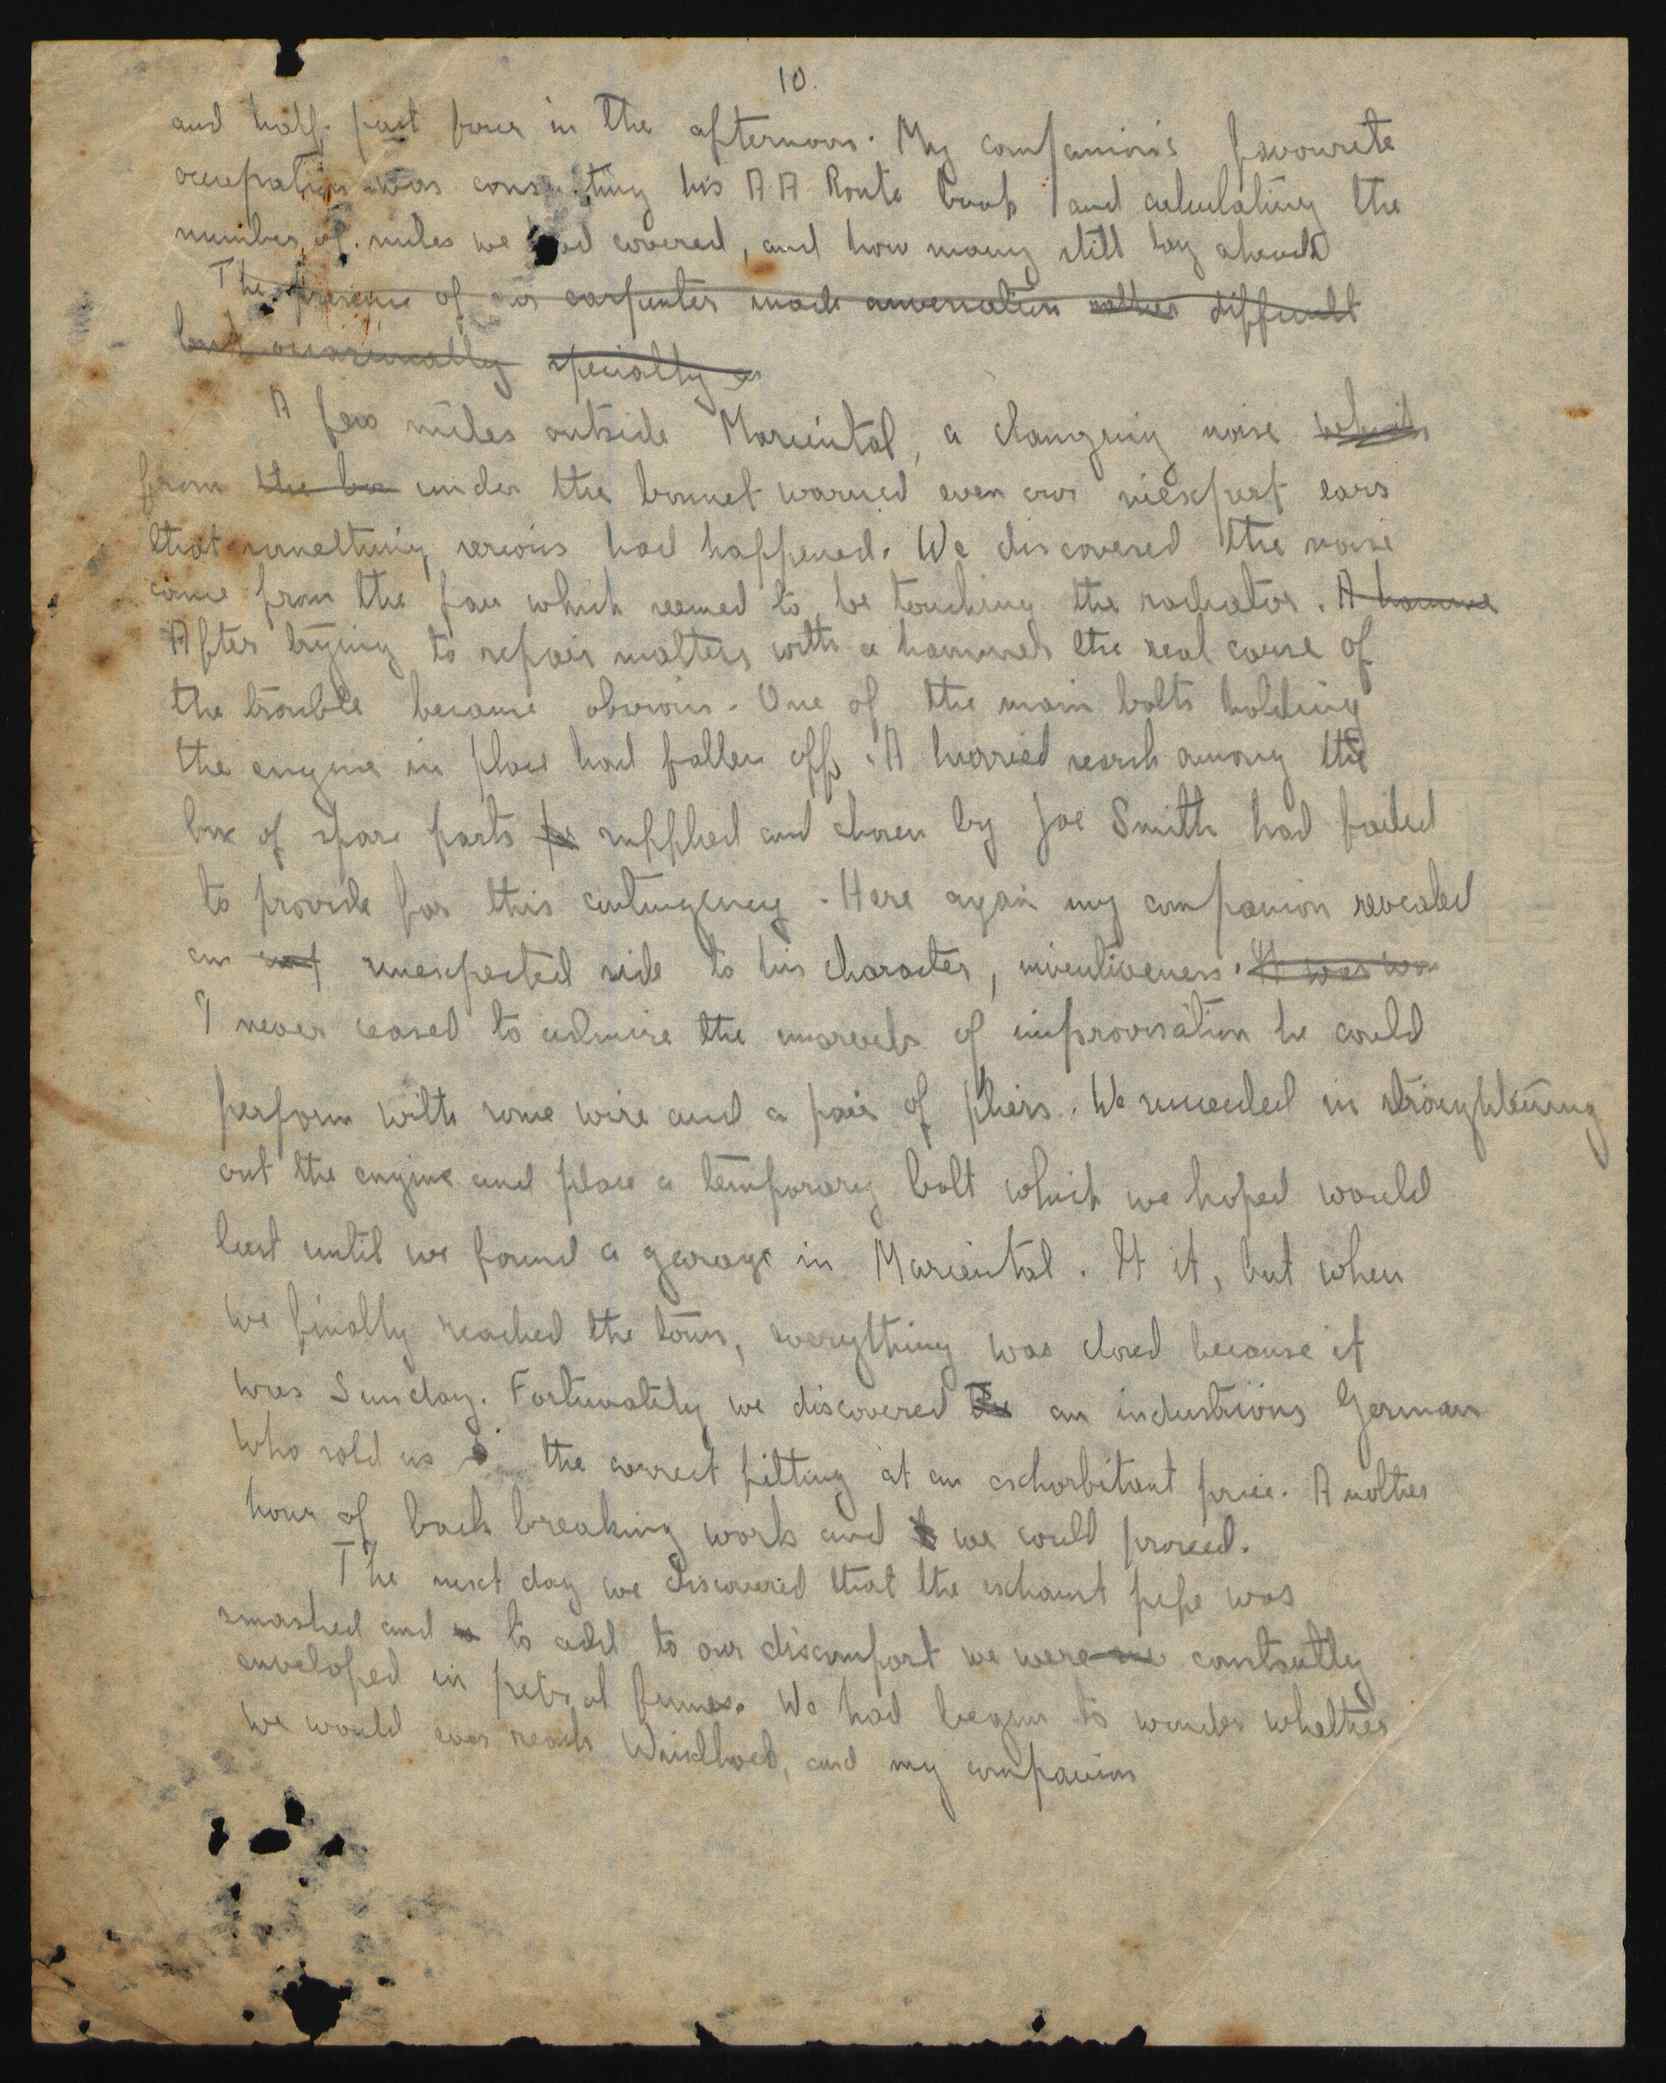 10.
and half past four in the afternoon. My companion's favourite
occupation was consulting his AA Route book and calculating the
number of miles we had covered, and how many still lay ahead
The presence of our carpenter made conversation rather difficult
but occasionally specially as
A few miles outside Mariental, a clanging noise which
from the bo under the bonnet warned even our inexpert ears
that something serious had happened. We discovered the noise
came from the fan which seemed to be touching the radiator. A hamme
After trying to repair matters with a hammer the real cause of
the trouble became obvious. One of the main bolts holding
the engine in place had fallen off. A hurried search among the
box of spare parts for supplied and chosen by Joe Smith had failed
to provide for this contingency. Here again my companion revealed
an unexpected side to his character, inventiveness. It was
I never ceased to admire the marvels of improvisation he could
perform with some wire and a pair of pliers. We succeeded in straightening
out the engine and place a temporary bolt which we hoped would
last until we found a garage in Mariental. It it, but when
we finally reached the town, everything was closed because it
was Sunday. Fortunately we discovered the an industrious German
who sold us the correct fitting at an exhorbitant price. Another
hour of back breaking work and we could proceed.
The next day we discovered that the exhaust pipe was
smashed and to add to our discomfort we were constantly
enveloped in petrol fumes. We had begun to wonder whether
we would ever reach Windhoek, and my companion